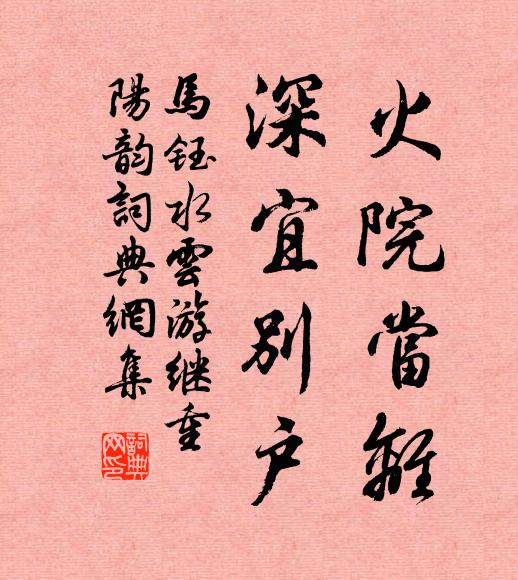 火院當離
深宜別户
馬鈺水雲游继重
陽韵詞典網集
詞典網印